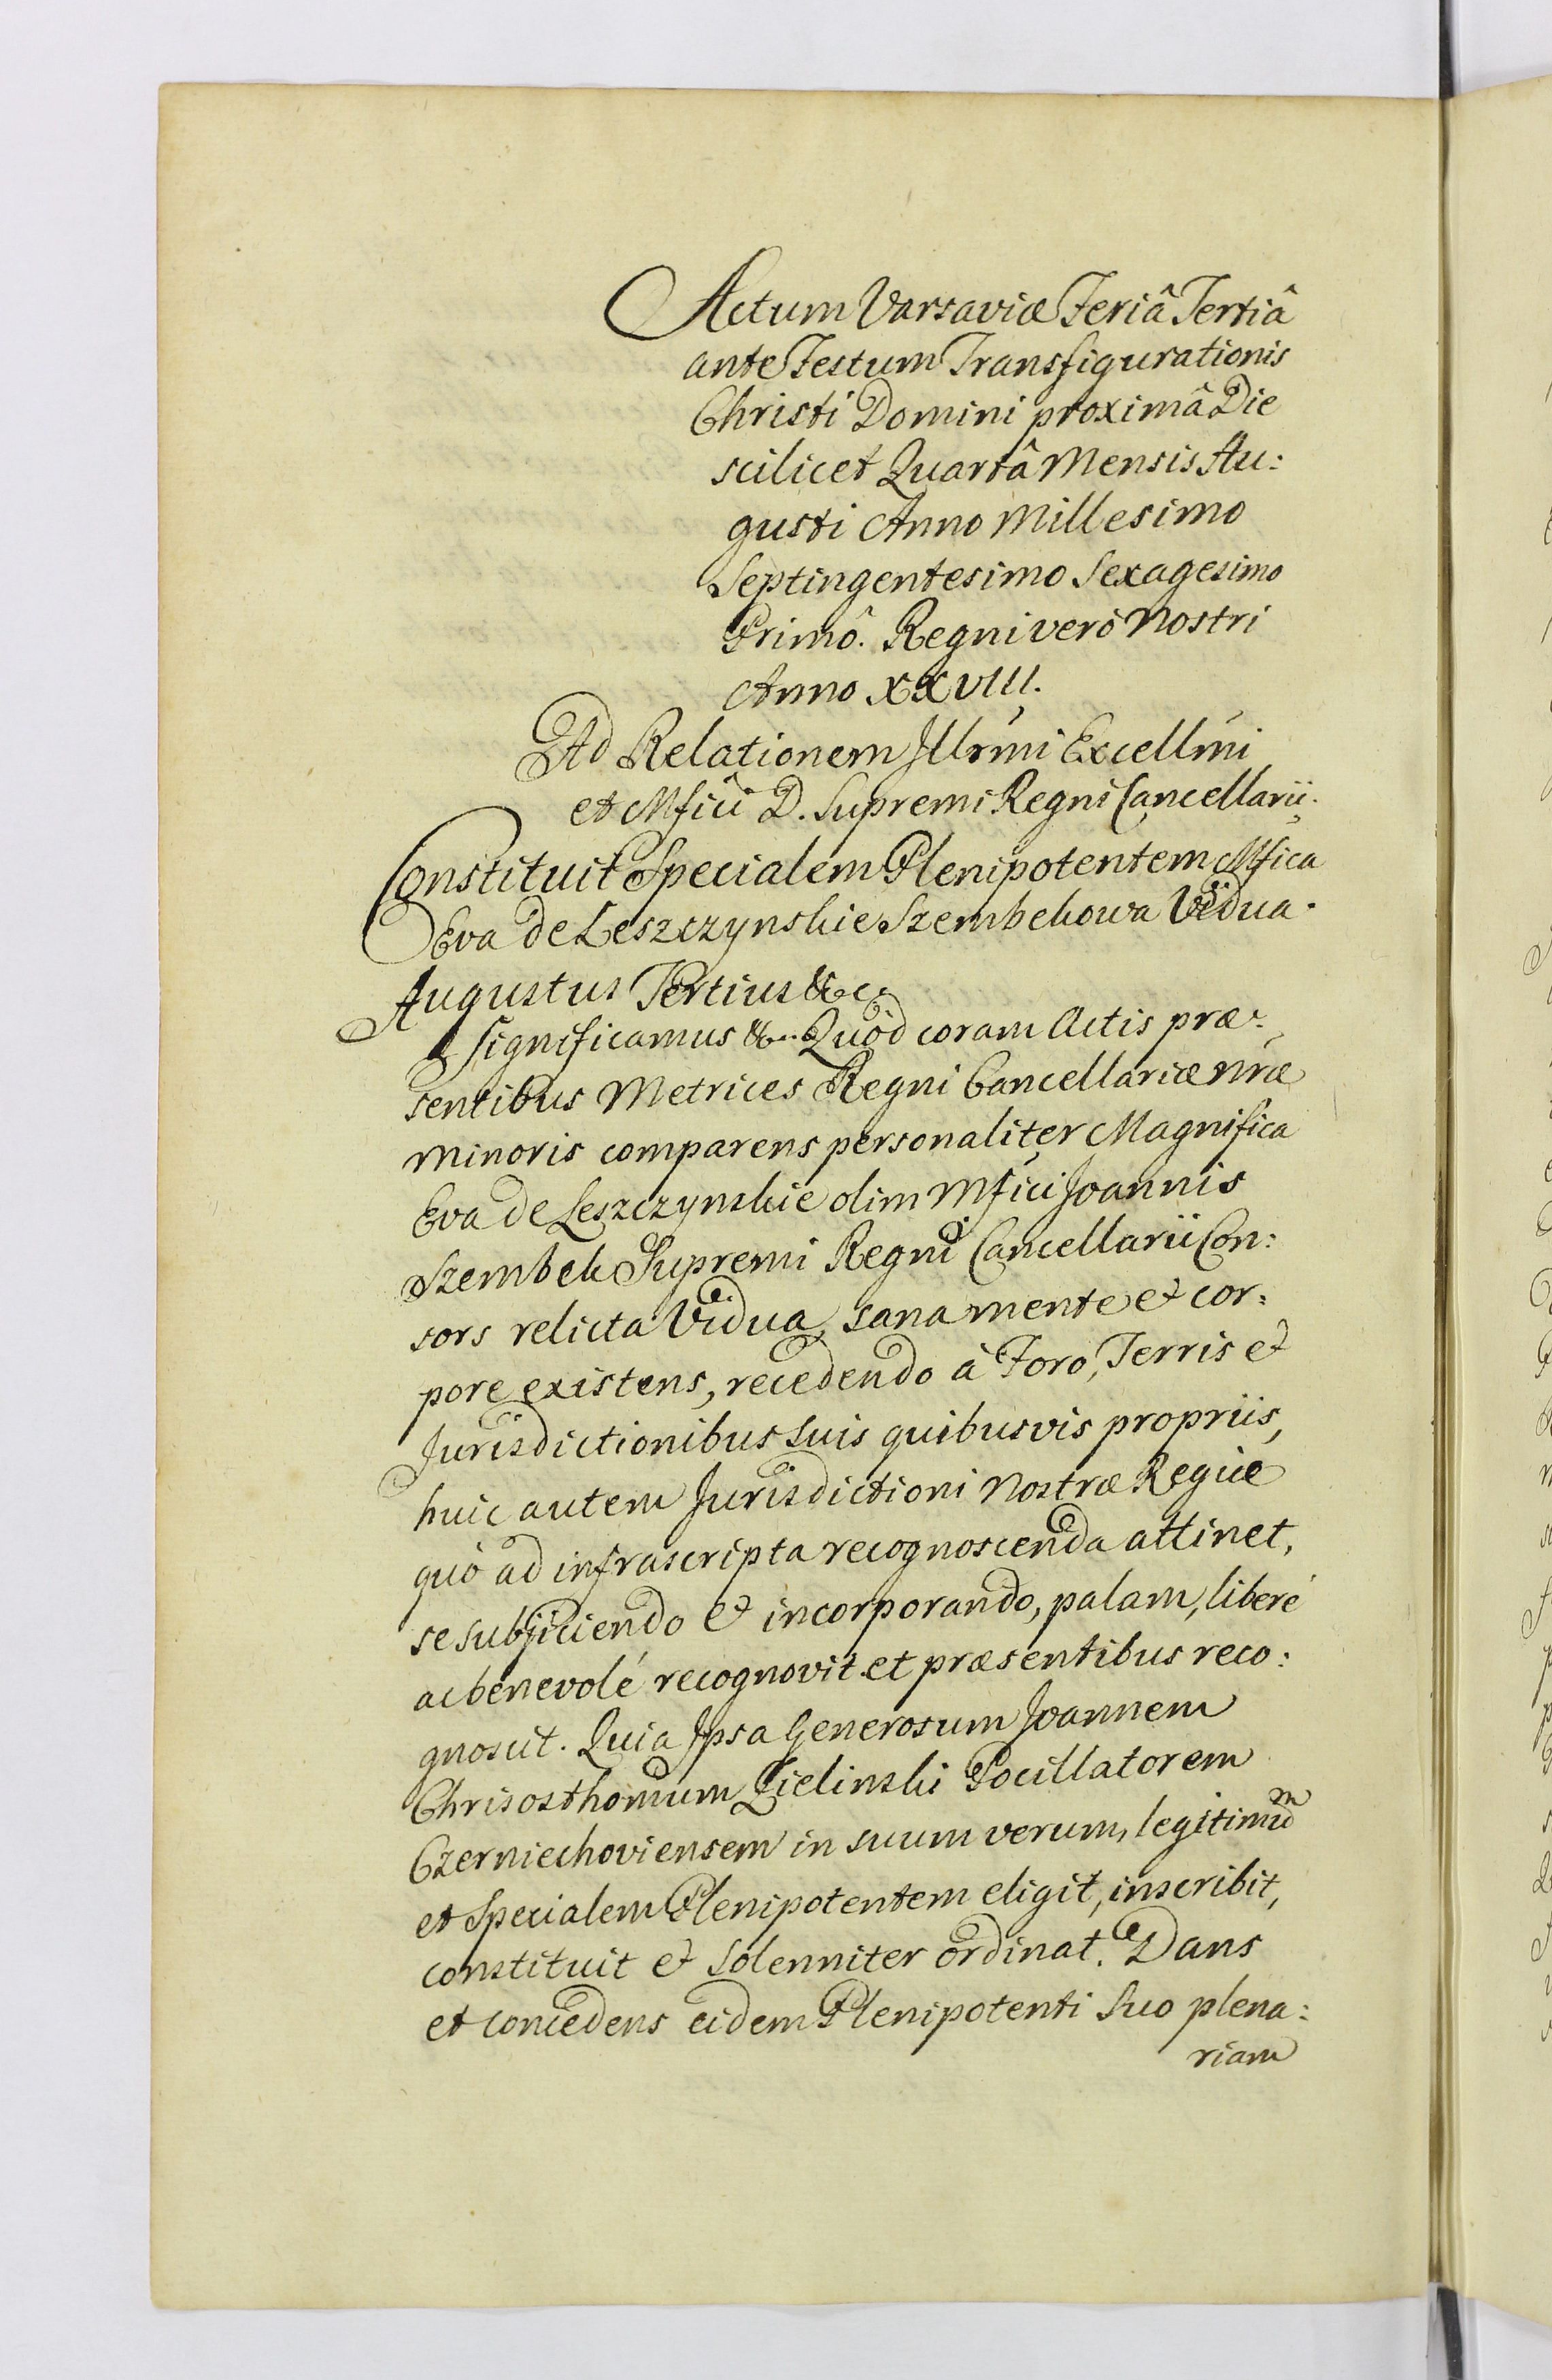 Actum Varsaviæ Feriâ Tertiâ
ante Festum Transfigurationis
Christi Domini proximâ Die
scilicet Quartâ Mensis Au:
gusti Anno Millesimo
Septingentesimo Sexagesimo
Primô. Regni verò Nostri
Anno XXVIII.
Ad Relationem Illrmi Excellmi
et Mfici D. Supremi Regni Cancellarii.
Constituit Specialem Plenipotentem Mfica
Eva de Leszczynskie Szembekowa Vidua.
Augustus Tertius &c.
Significamus &c. Quòd coram Actis præ:
sentibus Metrices Regni Cancellariæ nræ
Minoris comparens personaliter Magnifica
Eva de Leszczynskie olim Mfici Joannis
Szembek Supremi Regni Cancellarii Con:
sors relicta Vidua, sana mente et cor:
pore existens, recedendo à Foro, Terris et
Jurisdictionibus suis quibusvis propriis,
huic autem Jurisdictioni Nostræ Regiæ
quò ad infrascripta recognoscenda attinet,
se subjiciendo et incorporando, palam, liberé
ac benevolé recognovit et præsentibus reco:
gnoscit. Quia Ipsa Generosum Joannem
Chrisosthomum Zielinski Pocillatorem
Czerniechoviensem in suum verum, legitimum
et Specialem Plenipotentem eligit, inscribit,
constituit et solenniter ordinat. Dans
et concedens eidem Plenipotenti Suo plena:
riam